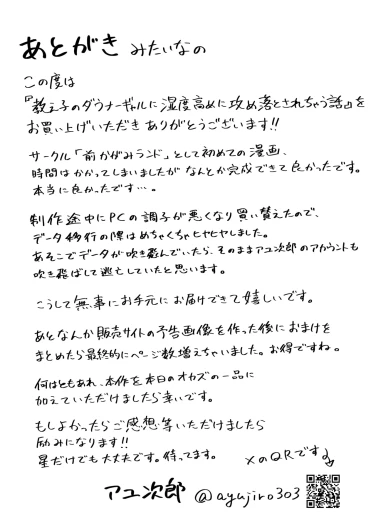 あとがき みたいなの
この度は
『教え子のダウナーギャルに湿度高めに攻め落とされちゃう話』を
お買い上げいただきありがとうございます!!
サークル「前かがみランド」として初めての漫画、
時間はかかってしまいましたがなんとか完成できて良かったです。
本当に良かったです…。
制作途中にPCの調子が悪くなり買い替えたので、
データ移行の際はめちゃくちゃヒヤヒヤしました。
あそこでデータが吹き飛んでいたら、そのままアユ次郎のアカウントも
吹き飛ばして逃亡していたと思います。
こうして無事にお手元にお届けできて嬉しいです。
あとなんか販売サイトの予告画像を作った後におまけを
まとめたら最終的にページ数増えちゃいました。お得ですね。
何はともあれ、本作を本日のオカズの一品に
加えていただけましたら幸いです。
もしよかったらご感想等いただけましたら
励みになります!!
星だけでも大丈夫です。待ってます。
XのQRです
アユ次郎 @ayujiro303